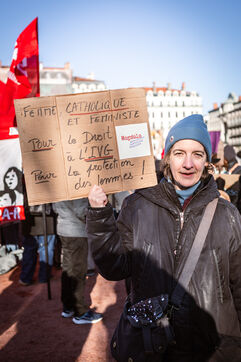 Femme CATHOLIQUE et FEMINISTE
Pour le Droit
à L'IVG
Pour la protection
des femmes !